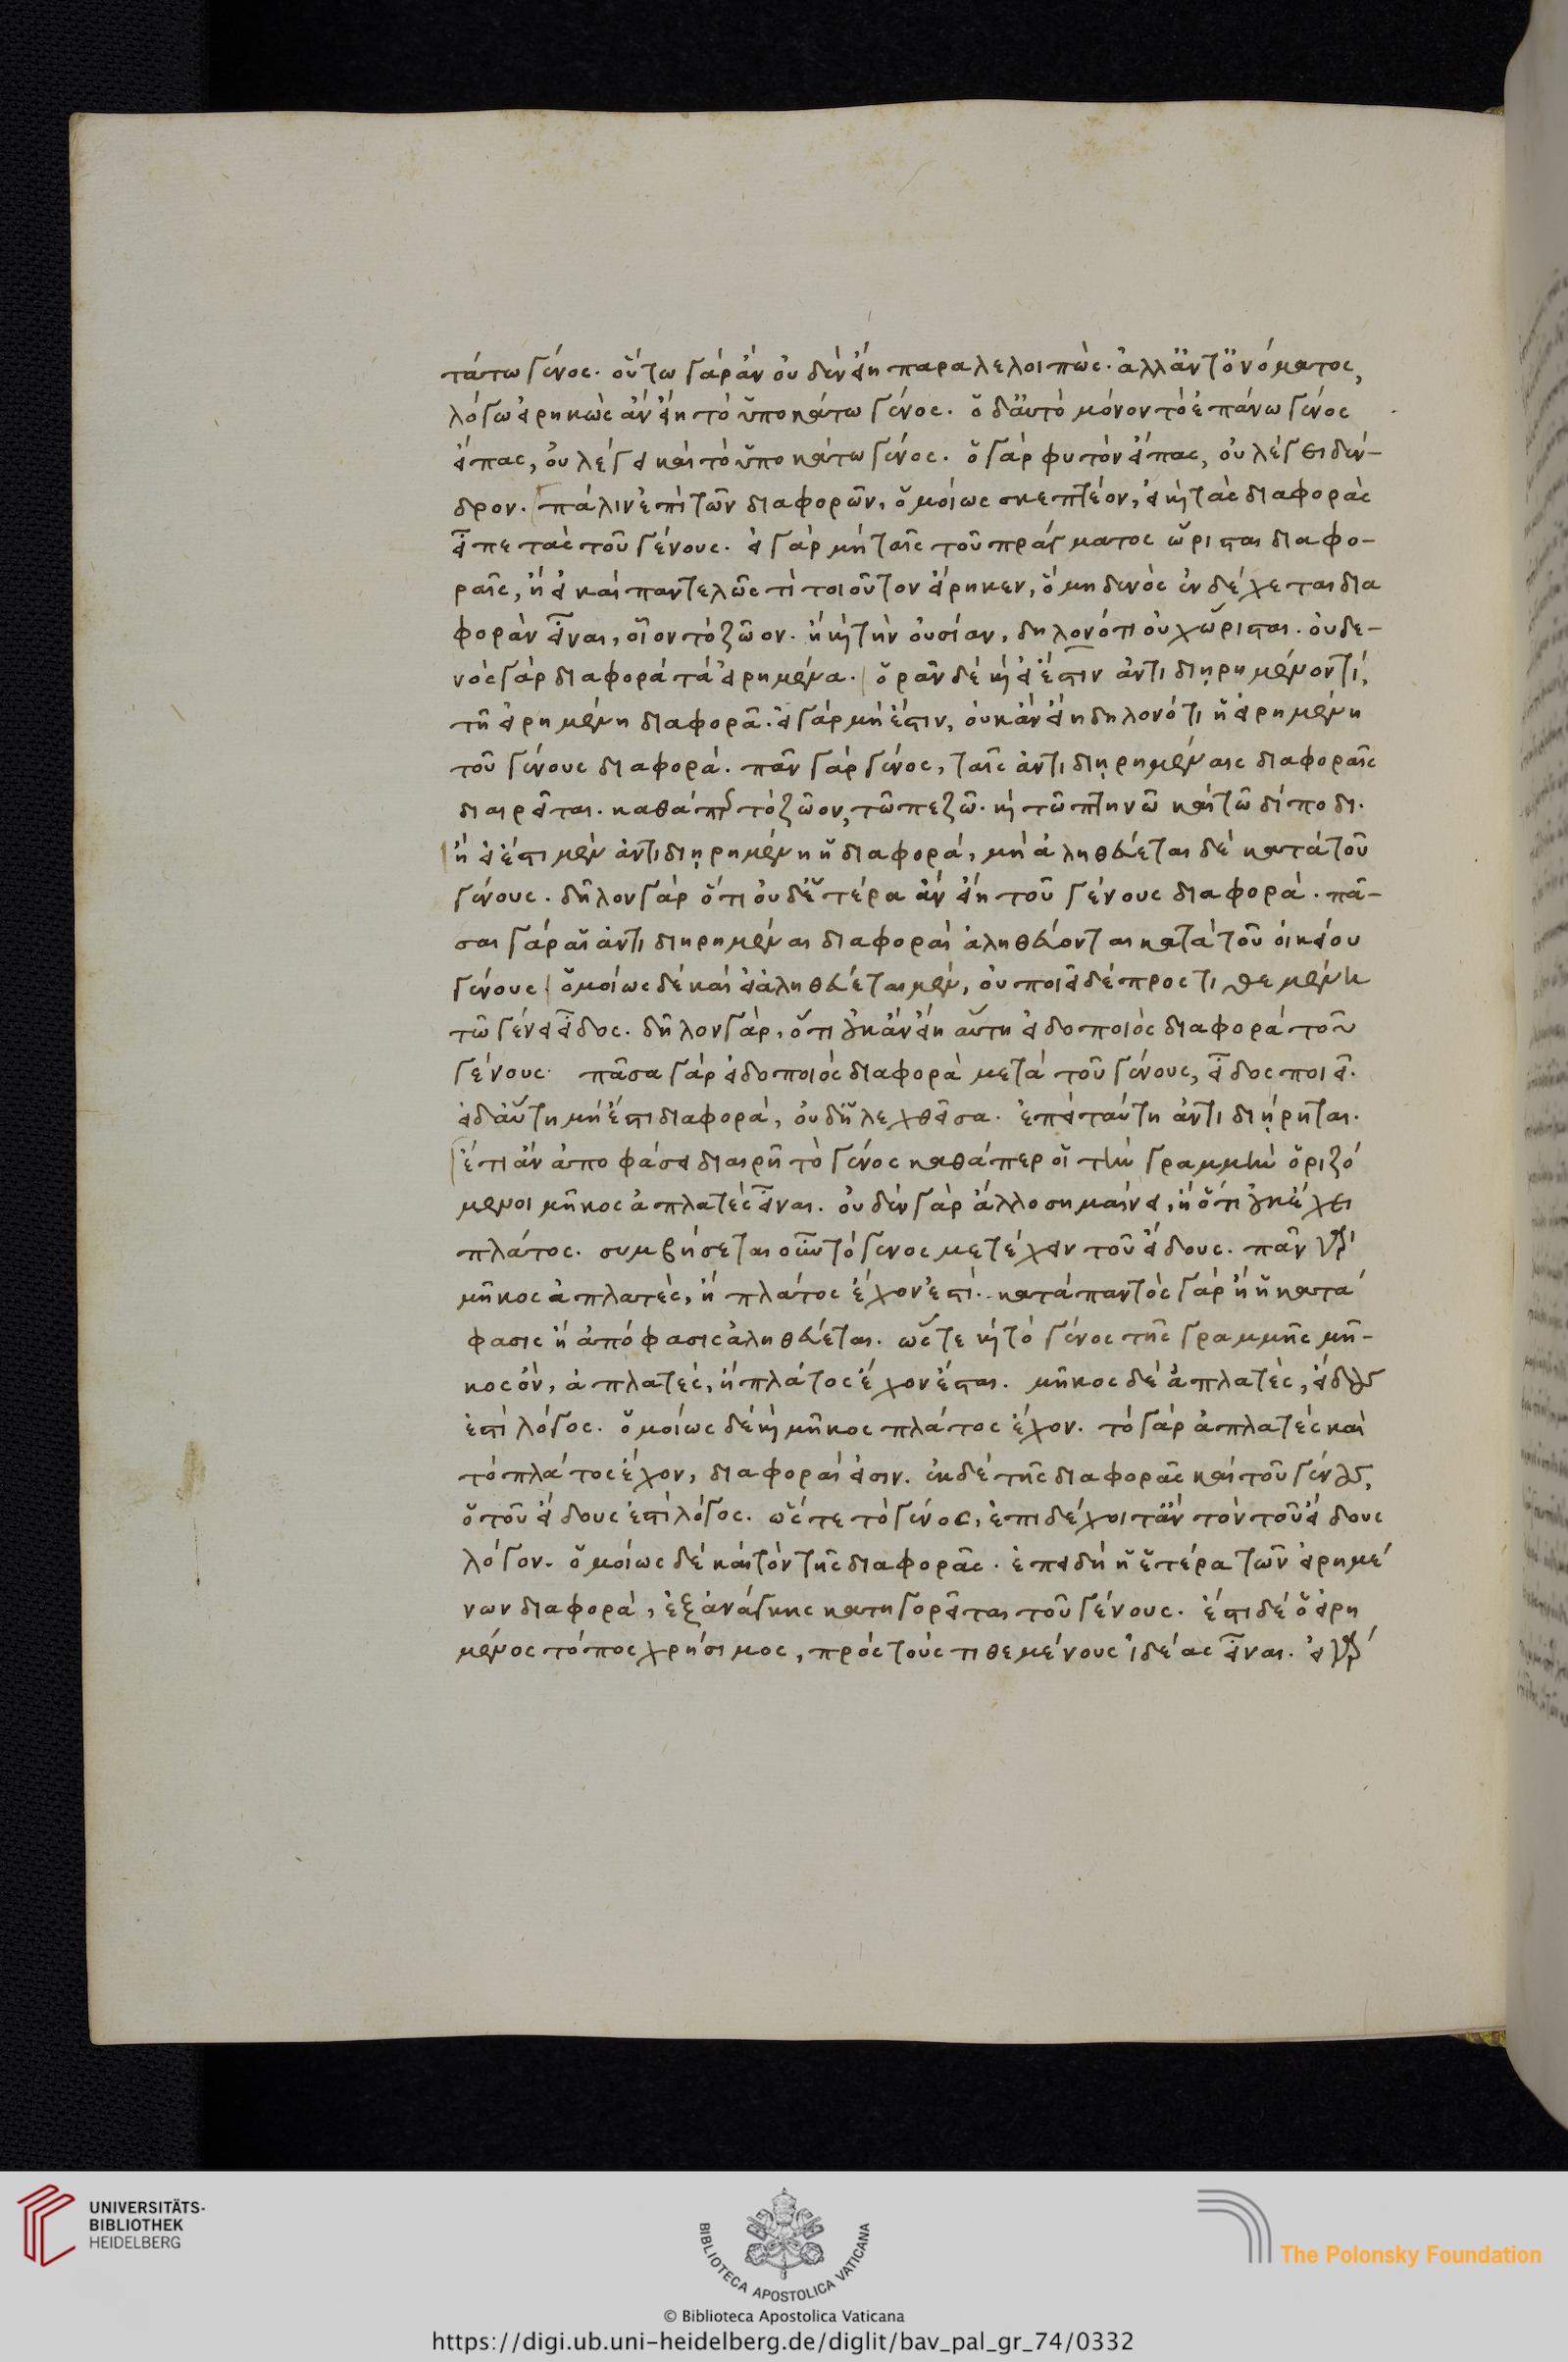 τάτω γένος. οὕτω γὰρ ἂν οὐδὲν εἴη παραλελοιπώς. ἀλλ' ἀντ' ὀνόματος,
λόγω εἰρηκὼς ἂν εἴη τὸ ὑποκάτω γένος. ὁ δ' αὐτὸ μόνον τὸ ἐπάνω γένος
εἴπας, οὐ λέγει καὶ τὸ ὑποκάτω γένος. ὁ γὰρ φυτὸν εἴπας, οὐ λέγει δέν-
δρον. πάλιν ἐπὶ τῶν διαφορῶν, ὁμοίως σκεπτέον, εἰ καὶ τὰς διαφορὰς
εἶπε τὰς τοῦ γένους. εἰ γὰρ μὴ ταῖς τοῦ πράγματος ὥρισται διαφο-
ραῖς, ἢ εἰ καὶ παντελῶς τὶ τοιοῦτον εἴρηκεν, ὃ μηδενὸς ἐνδέχεται δια
φορὰν εἶναι, οἷον τὸ ζῶον. ἢ καὶ τὴν οὐσίαν, δηλονότι οὐχ ὥρισται. οὐδε-
νὸς γὰρ διαφορά τὰ εἰρημένα. ὁρᾶν δὲ καὶ εἰ ἔστιν ἀντιδιῃρημένον τί,
τῆ εἰρημένη διαφορᾶ. εἰ γὰρ μὴ ἔστιν, οὐκ ἂν εἴη δηλονότι ἡ εἰρημένη
τοῦ γένους διαφορά. πᾶν γὰρ γένος, ταῖς ἀντιδιῃρημέναις διαφοραῖς
διαιρεῖται. καθάπερ τὸ ζῶον, τῶ πεζῶ. καὶ τῶ πτηνῶ καὶ τῶ δίποδι.
ἢ εἰ ἔστι μὲν ἀντιδιῃρημένη ἡ διαφορά, μὴ ἀληθεύεται δὲ κατὰ τοῦ
γένους. δῆλον γὰρ ὅτι οὐδ' ἑτέρα ἂν εἴη τοῦ γένους διαφορά. πᾶ-
σαι γὰρ αἱ ἀντιδιηρημέναι διαφοραὶ ἀληθεύονται κατὰ τοῦ οἰκείου
γένους. ὁμοίως δὲ καὶ εἰ ἀληθεύεται μὲν, οὐ ποιεῖ δὲ προστιθεμένη
τῶ γένει εἶδος. δῆλον γὰρ, ὅτι οὐκ ἂν εἴη αὕτη εἰδοποιὸς διαφορά τοῦ
γένους. πᾶσα γὰρ εἰδοποιὸς διαφορὰ μετὰ τοῦ γένους, εἶδος ποιεῖ.
εἰ δ' αὕτη μὴ ἔστι διαφορά, οὐδ' ἡ λεχθεῖσα. ἐπεὶ ταύτη ἀντιδιῄρηται.
ἔτι ἂν ἀποφάσει διαιρῆ τὸ γένος καθάπερ οἱ τὴν γραμμὴν ὁριζό
μενοι μῆκος ἀπλατὲς εἶναι. οὐδὲν γὰρ ἄλλο σημαίνει, ἢ ὅτι οὐκ ἔχει
πλάτος. συμβήσεται οὖν τὸ γένος μετέχειν τοῦ εἴδους. πᾶν γὰρ
μῆκος ἀπλατὲς, ἢ πλάτος ἔχον ἐστί. κατὰ παντὸς γὰρ ἢ ἡ κατά
φασις ἢ ἀπόφασις ἀληθεύεται. ὥστε καὶ τὸ γένος τῆς γραμμῆς μῆ-
κος ὂν, ἀπλατὲς, ἢ πλάτος ἔχον ἔσται. μῆκος δὲ ἀπλατὲς, εἴδους
ἐστὶ λόγος. ὁμοίως δὲ καὶ μῆκος πλάτος ἔχον. τὸ γὰρ ἀπλατὲς καὶ
τὸ πλάτος ἔχον, διαφοραί εἰσιν. ἐκ δὲ τῆς διαφορᾶς καὶ τοῦ γένους,
ὁ τοῦ εἴδους ἐστὶ λόγος. ὥστε τὸ γένος, ἐπιδέχοιτ' ἂν τὸν τοῦ εἴδους
λόγον. ὁμοίως δὲ καὶ τὸν τῆς διαφορᾶς. ἐπειδὴ ἡ ἑτέρα τῶν εἰρημέ
νων διαφορά, ἐξ ἀνάγκης κατηγορεῖται τοῦ γένους. ἔστι δὲ ὁ εἰρη
μένος τόπος χρήσιμος, πρὸς τοὺς τιθεμένους ἰδέας εἶναι. εἰ γὰρ
UNIVERSITÄTS-
BIBLIOTHEK
HEIDELBERG
BIBLIOTECA APOSTOLICA VATICANA
The Polonsky Foundation
© Biblioteca Apostolica Vaticana
https://digi.ub.uni-heidelberg.de/diglit/bav_pal_gr_74/0332